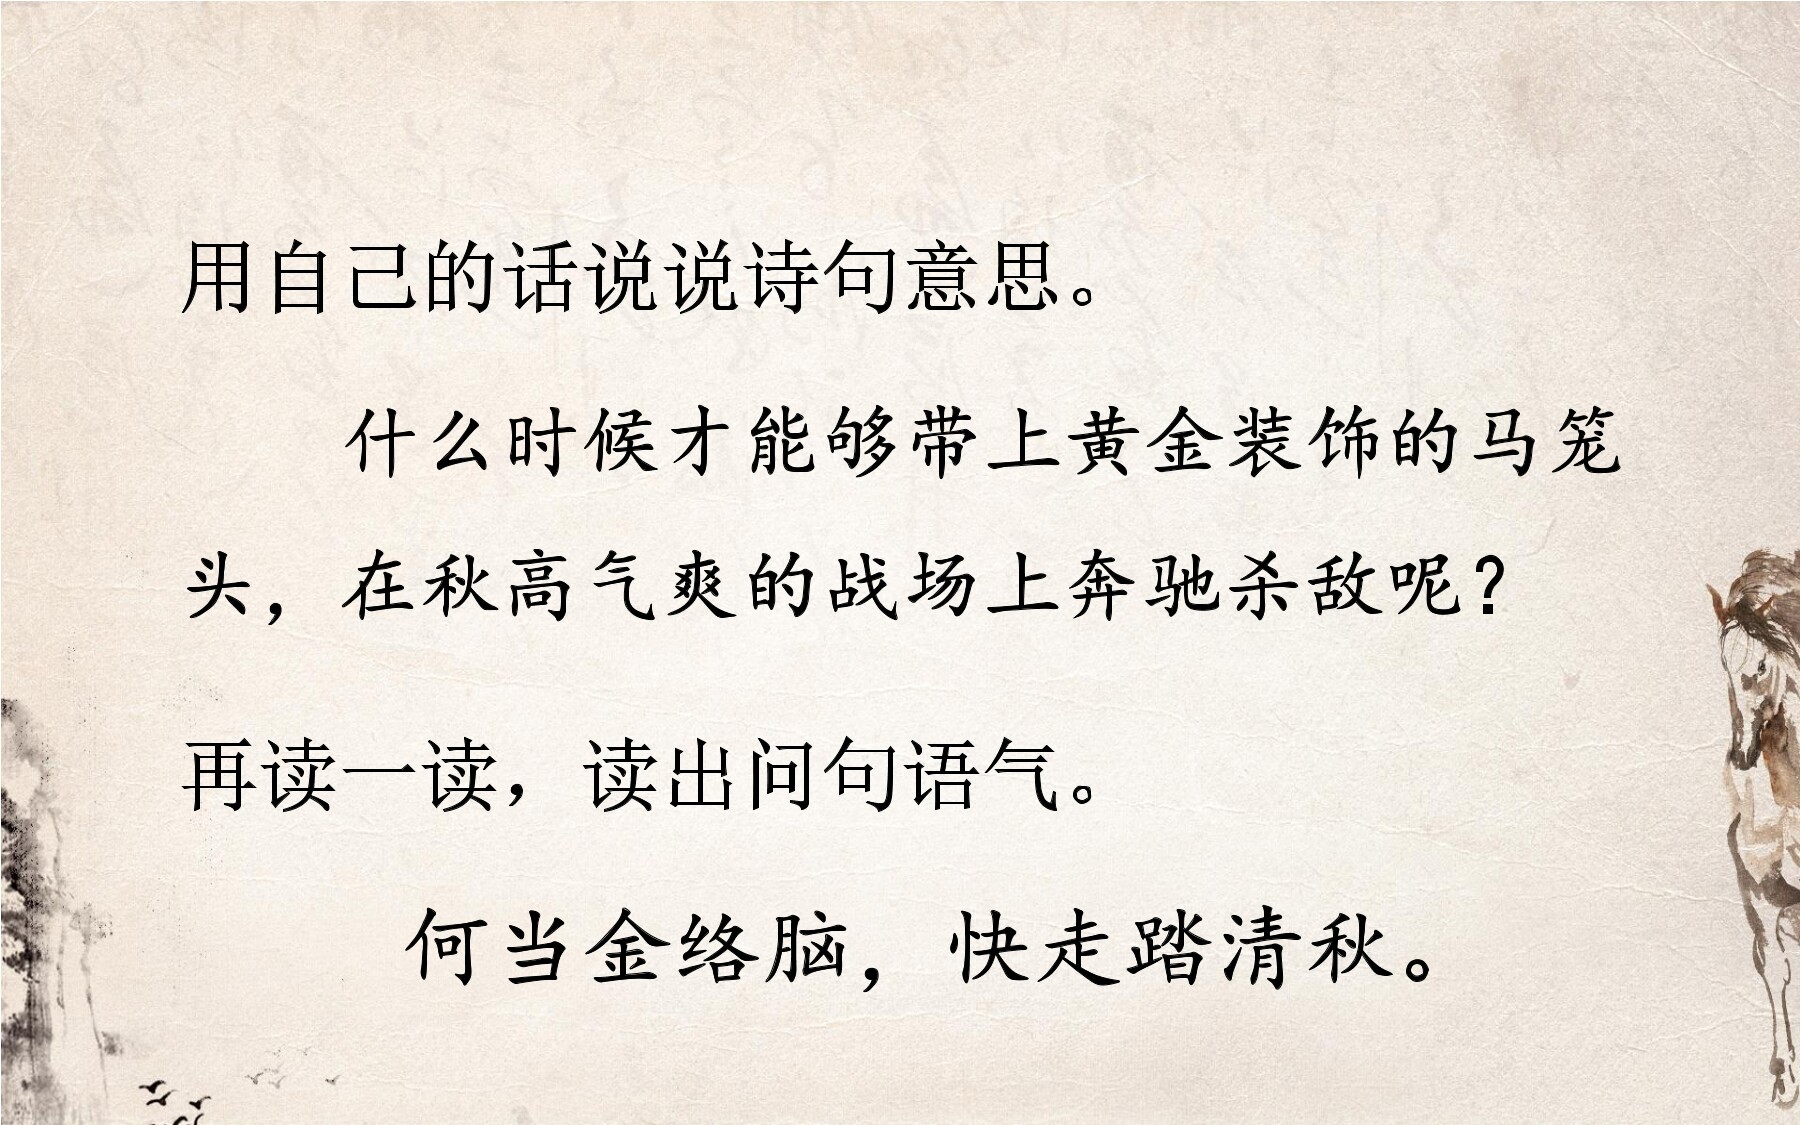 用自己的话说说诗句意思。
什么时候才能够带上黄金装饰的马笼
头，在秋高气爽的战场上奔驰杀敌呢？
再读一读，读出问句语气。
何当金络脑，快走踏清秋。